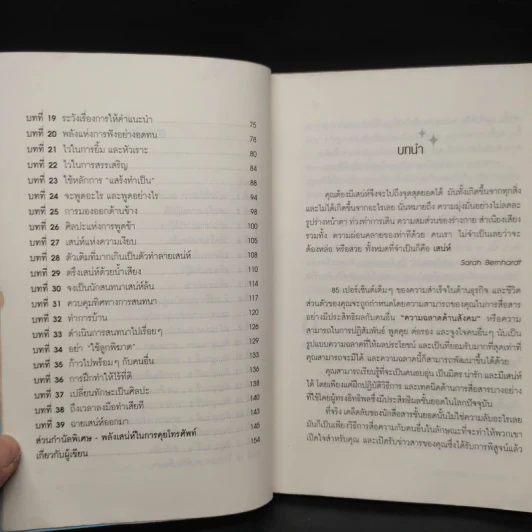 บทที่ 19 ระวังเรื่องการให้คำแนะนำ 75
บทที่ 20 พลังแห่งการฟังอย่างอดทน 78
บทที่ 21 ไวในการยิ้ม และหัวเราะ 80
บทที่ 22 ไวในการสรรเสริญ 84
บทที่ 23 ใช้หลักการ "แสร้งทำเป็น" 88
บทที่ 24 จะพูดอะไร และพูดอย่างไร 94
บทที่ 25 การมองออกด้านข้าง 98
บทที่ 26 ศิลปะแห่งการพูดช้า 100
บทที่ 27 เสน่ห์แห่งความเงียบ 105
บทที่ 28 ตัวเติมที่มากเกินเป็นตัวทำลายเสน่ห์ 108
บทที่ 29 ตรึงเสน่ห์ด้วยน้ำเสียง
บทที่ 30 จงเป็นนักสนทนาเสน่ห์ล้น
บทที่ 31 ควบคุมทิศทางการสนทนา
บทที่ 32 ทำการบ้าน
บทที่ 33 ดำเนินการสนทนาไปเรื่อยๆ
บทที่ 34 อย่า "ใช้ลูกพิฆาต"
บทที่ 35 ก้าวไปพร้อมๆ กับคนอื่น
บทที่ 36 การฝึกทำให้ไร้ที่ติ
บทที่ 37 เปลี่ยนทักษะเป็นศิลปะ
บทที่ 38 ถึงเวลาลงมือทำเสียที
บทที่ 39 ฉายเสน่ห์ออกมา
ส่วนกำนัลพิเศษ - พลังเสน่ห์ในการคุยโทรศัพท์ 154
เกี่ยวกับผู้เขียน 164
บทนำ
คุณต้องมีเสน่ห์จึงจะไปถึงจุดสุดยอดได้ มันทั้งเกิดขึ้นจากทุกสิ่ง
และไม่ได้เกิดขึ้นจากอะไรเลย นั่นหมายถึง ความมุ่งมั่นอย่างไม่ลดละ
รูปร่างหน้าตา ท่วงท่าการเดิน ความสมส่วนของร่างกาย สำเนียงเสียง
รวมทั้ง ความผ่อนคลายของท่าทีด้วย คนเรา ไม่จำเป็นเลยว่าจะ
ต้องหล่อ หรือสวย ทั้งหมดที่จำเป็นก็คือ เสน่ห์
Sarah Bernhardt
85 เปอร์เซ็นต์เต็มๆ ของความสำเร็จในด้านธุรกิจ และชีวิต
ส่วนตัวของคุณจะถูกกำหนดโดยความสามารถของคุณในการสื่อสาร
อย่างมีประสิทธิผลกับคนอื่น "ความฉลาดด้านสังคม" หรือความ
สามารถในการปฏิสัมพันธ์ พูดคุย ต่อรอง และจูงใจคนอื่นๆ นับเป็น
รูปแบบความฉลาดที่ให้ผลประโยชน์ และเป็นที่ยอมรับมากที่สุดเท่าที่
คุณสามารถจะมีได้ และความฉลาดนี้ก็สามารถพัฒนาขึ้นได้ด้วย
คุณสามารถเรียนรู้ที่จะเป็นคนอบอุ่น เป็นมิตร น่ารัก และมีเสน่ห์
ได้ โดยเพียงแค่ฝึกปฏิบัติวิธีการ และเทคนิคด้านการสื่อสารบางอย่าง
ที่ใช้โดยผู้ทรงอิทธิพลซึ่งมีประสิทธิผลชั้นยอดในโลกปัจจุบัน
ที่จริง เคล็ดลับของนักสื่อสารชั้นยอดนั้นไม่ใช่ความลับอะไรเลย
มันก็เป็นเพียงวิธีการสื่อความกับคนอื่นในลักษณะที่จะทำให้พวกเขา
เปิดใจสำหรับคุณ และเปิดรับข่าวสารของคุณซึ่งได้รับการพิสูจน์แล้ว